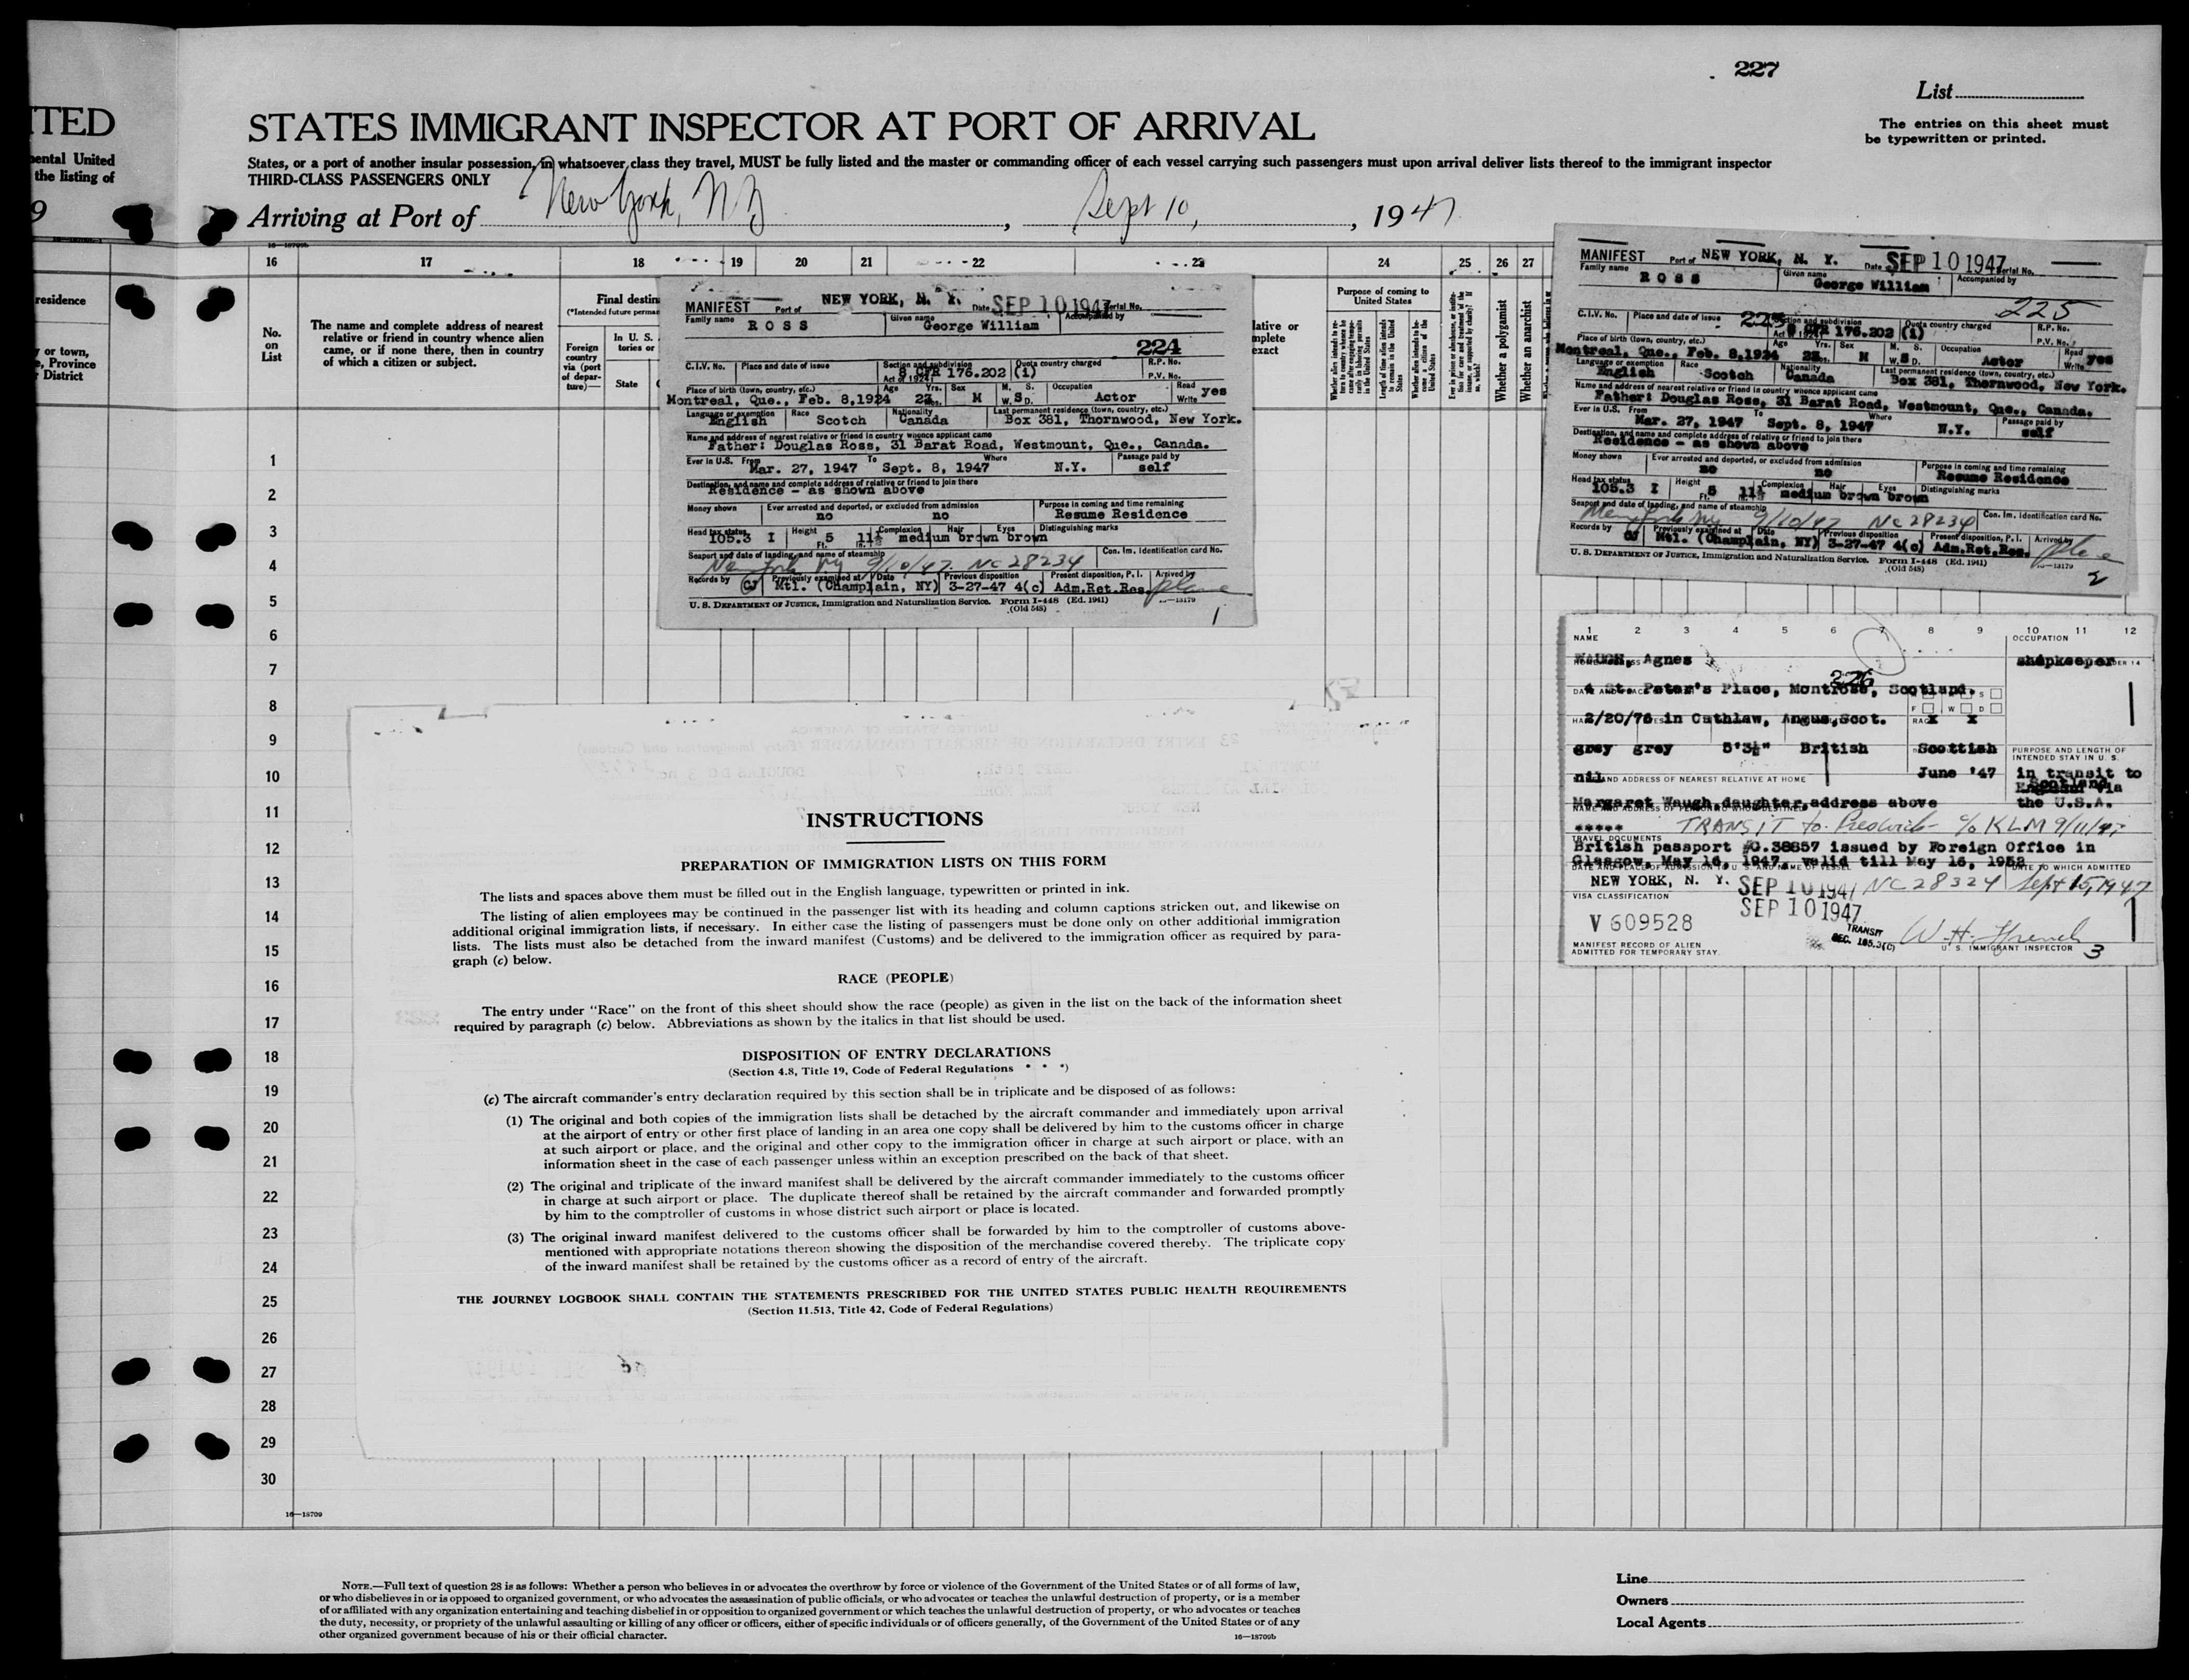 227
List
The entries on this sheet must
be typewritten or printed.
ITED
STATES IMMIGRANT INSPECTOR AT PORT OF ARRIVAL
ental United
the listing of
States, or a port of another insular possession, in whatsoever class they travel, MUST be fully listed and the master or commanding officer of each vessel carrying such passengers must upon arrival deliver lists thereof to the immigrant inspector
THIRD-CLASS PASSENGERS ONLY
9
Arriving at Port of New York, NY, Sept 10, 1947
16 17 18 19 20 21 22 23 24 25 26 27
residence
y or town,
e, Province
r District
No.
on
List
The name and complete address of nearest
relative or friend in country whence alien
came, or if none there, then in country
of which a citizen or subject.
Final destin
(*Intended future perman
Foreign
country
via (port
of depar-
ture)—
In U. S.
tories or
State
lative or
mplete
exact
Purpose of coming to
United States
Whether a polygamist
Whether an anarchist
MANIFEST Port of NEW YORK, N. Y. Date SEP 10 1947 Serial No.
Family name ROSS Given name George William Accompanied by
224
C.I.V. No. Place and date of issue Section and subdivision Act of 1924 8 CFR 176.202 (1) Quota country charged R.P. No.
P.V. No.
Place of birth (town, country, etc.) Age Yrs. Sex M. S. Occupation Read yes
Montreal, Que., Feb. 8,1924 23 M W. S D. Actor Write
Language or exemption English Race Scotch Nationality Canada Last permanent residence (town, country, etc.) Box 381, Thornwood, New York.
Name and address of nearest relative or friend in country whence applicant came
Father: Douglas Ross, 31 Barat Road, Westmount, Que., Canada.
Ever in U.S. From Mar. 27, 1947 To Sept. 8, 1947 Where N.Y. Passage paid by self
Destination, and name and complete address of relative or friend to join there
Residence - as shown above
Money shown Ever arrested and deported, or excluded from admission Purpose in coming and time remaining
no no Resume Residence
Head tax status 105.3 I Height Ft. 5 In. 11½ Complexion medium Hair brown Eyes brown Distinguishing marks
Seaport and date of landing, and name of steamship Con. Im. Identification card No.
New York NY 9/10/47 NC 28234
Records by Previously examined at Date Previous disposition Present disposition, P. I. Arrived by
Mtl. (Champlain, NY) 3-27-47 4(c) Adm.Ret.Res. plane
U. S. DEPARTMENT OF JUSTICE, Immigration and Naturalization Service. Form I-448 (Ed. 1941)
(Old 548) 1
MANIFEST Port of NEW YORK, N. Y. Date SEP 10 1947 Serial No.
Family name ROSS Given name George William Accompanied by
225
C.I.V. No. Place and date of issue 225 Section and subdivision 8 CFR 176.202 (1) Quota country charged R.P. No.
P.V. No.
Place of birth (town, country, etc.) Age Yrs. Sex M. S. Occupation Read yes
Montreal, Que., Feb. 8,1924 23 M W. S D. Actor Write
Language or exemption English Race Scotch Nationality Canada Last permanent residence (town, country, etc.) Box 381, Thornwood, New York.
Name and address of nearest relative or friend in country whence applicant came
Father: Douglas Ross, 31 Barat Road, Westmount, Que., Canada.
Ever in U.S. From Mar. 27, 1947 To Sept. 8, 1947 Where N.Y. Passage paid by self
Destination, and name and complete address of relative or friend to join there
Residence - as shown above
Money shown Ever arrested and deported, or excluded from admission Purpose in coming and time remaining
no no Resume Residence
Head tax status 105.3 I Height Ft. 5 11½ Complexion medium Hair brown Eyes brown Distinguishing marks
Seaport and date of landing, and name of steamship Con. Im. Identification card No.
New York NY 9/10/47 NC 28234
Records by Previously examined at Date Previous disposition Present disposition, P. I. Arrived by
Mtl. (Champlain, NY) 3-27-47 4(c) Adm.Ret.Res. plane
U. S. DEPARTMENT OF JUSTICE, Immigration and Naturalization Service. Form I-448 (Ed. 1941)
(Old 548) 2
1 2 3 4 5 6 7 8 9 10 11 12
NAME OCCUPATION
WAUGH, Agnes shopkeeper
226
4 St. Peter's Place, Montrose, Scotland.
2/20/76 in Cuthlaw, Angus, Scot. X X
grey grey 5'3½" British Scottish
PURPOSE AND LENGTH OF
INTENDED STAY IN U. S.
nil June '47 in transit to
NAME AND ADDRESS OF NEAREST RELATIVE AT HOME
Scotland
England via
Margaret Waugh, daughter, address above the U.S.A.
***** TRANSIT to Prestwick c/o KLM 9/11/47
TRAVEL DOCUMENTS
British passport #C.38857 issued by Foreign Office in
Glasgow, May 16, 1947, valid till May 16, 1952
DATE AND PLACE OF ADMISSION TO U. S. AND NAME OF VESSEL DATE TO WHICH ADMITTED
NEW YORK, N. Y. SEP 10 1947 NC 28324 Sept 15, 1947
VISA CLASSIFICATION SEP 10 1947
V 609528
TRANSIT
SEC. 165.3(C)
W. H. French
MANIFEST RECORD OF ALIEN
ADMITTED FOR TEMPORARY STAY.
U. S. IMMIGRANT INSPECTOR 3
1
2
3
4
5
6
7
8
9
10
11
12
13
14
15
16
17
18
19
20
21
22
23
24
25
26
27
28
29
30
INSTRUCTIONS
PREPARATION OF IMMIGRATION LISTS ON THIS FORM
The lists and spaces above them must be filled out in the English language, typewritten or printed in ink.
The listing of alien employees may be continued in the passenger list with its heading and column captions stricken out, and likewise on
additional original immigration lists, if necessary. In either case the listing of passengers must be done only on other additional immigration
lists. The lists must also be detached from the inward manifest (Customs) and be delivered to the immigration officer as required by para-
graph (c) below.
RACE (PEOPLE)
The entry under "Race" on the front of this sheet should show the race (people) as given in the list on the back of the information sheet
required by paragraph (c) below. Abbreviations as shown by the italics in that list should be used.
DISPOSITION OF ENTRY DECLARATIONS
(Section 4.8, Title 19, Code of Federal Regulations * * *)
(c) The aircraft commander's entry declaration required by this section shall be in triplicate and be disposed of as follows:
(1) The original and both copies of the immigration lists shall be detached by the aircraft commander and immediately upon arrival
at the airport of entry or other first place of landing in an area one copy shall be delivered by him to the customs officer in charge
at such airport or place, and the original and other copy to the immigration officer in charge at such airport or place, with an
information sheet in the case of each passenger unless within an exception prescribed on the back of that sheet.
(2) The original and triplicate of the inward manifest shall be delivered by the aircraft commander immediately to the customs officer
in charge at such airport or place. The duplicate thereof shall be retained by the aircraft commander and forwarded promptly
by him to the comptroller of customs in whose district such airport or place is located.
(3) The original inward manifest delivered to the customs officer shall be forwarded by him to the comptroller of customs above-
mentioned with appropriate notations thereon showing the disposition of the merchandise covered thereby. The triplicate copy
of the inward manifest shall be retained by the customs officer as a record of entry of the aircraft.
THE JOURNEY LOGBOOK SHALL CONTAIN THE STATEMENTS PRESCRIBED FOR THE UNITED STATES PUBLIC HEALTH REQUIREMENTS
(Section 11.513, Title 42, Code of Federal Regulations)
16—18709
NOTE.—Full text of question 28 is as follows: Whether a person who believes in or advocates the overthrow by force or violence of the Government of the United States or of all forms of law,
or who disbelieves in or is opposed to organized government, or who advocates the assassination of public officials, or who advocates or teaches the unlawful destruction of property, or is a member
of or affiliated with any organization entertaining and teaching disbelief in or opposition to organized government or which teaches the unlawful destruction of property, or who advocates or teaches
the duty, necessity, or propriety of the unlawful assaulting or killing of any officer or officers, either of specific individuals or of officers generally, of the Government of the United States or of any
other organized government because of his or their official character.
16—18709b
Line
Owners
Local Agents